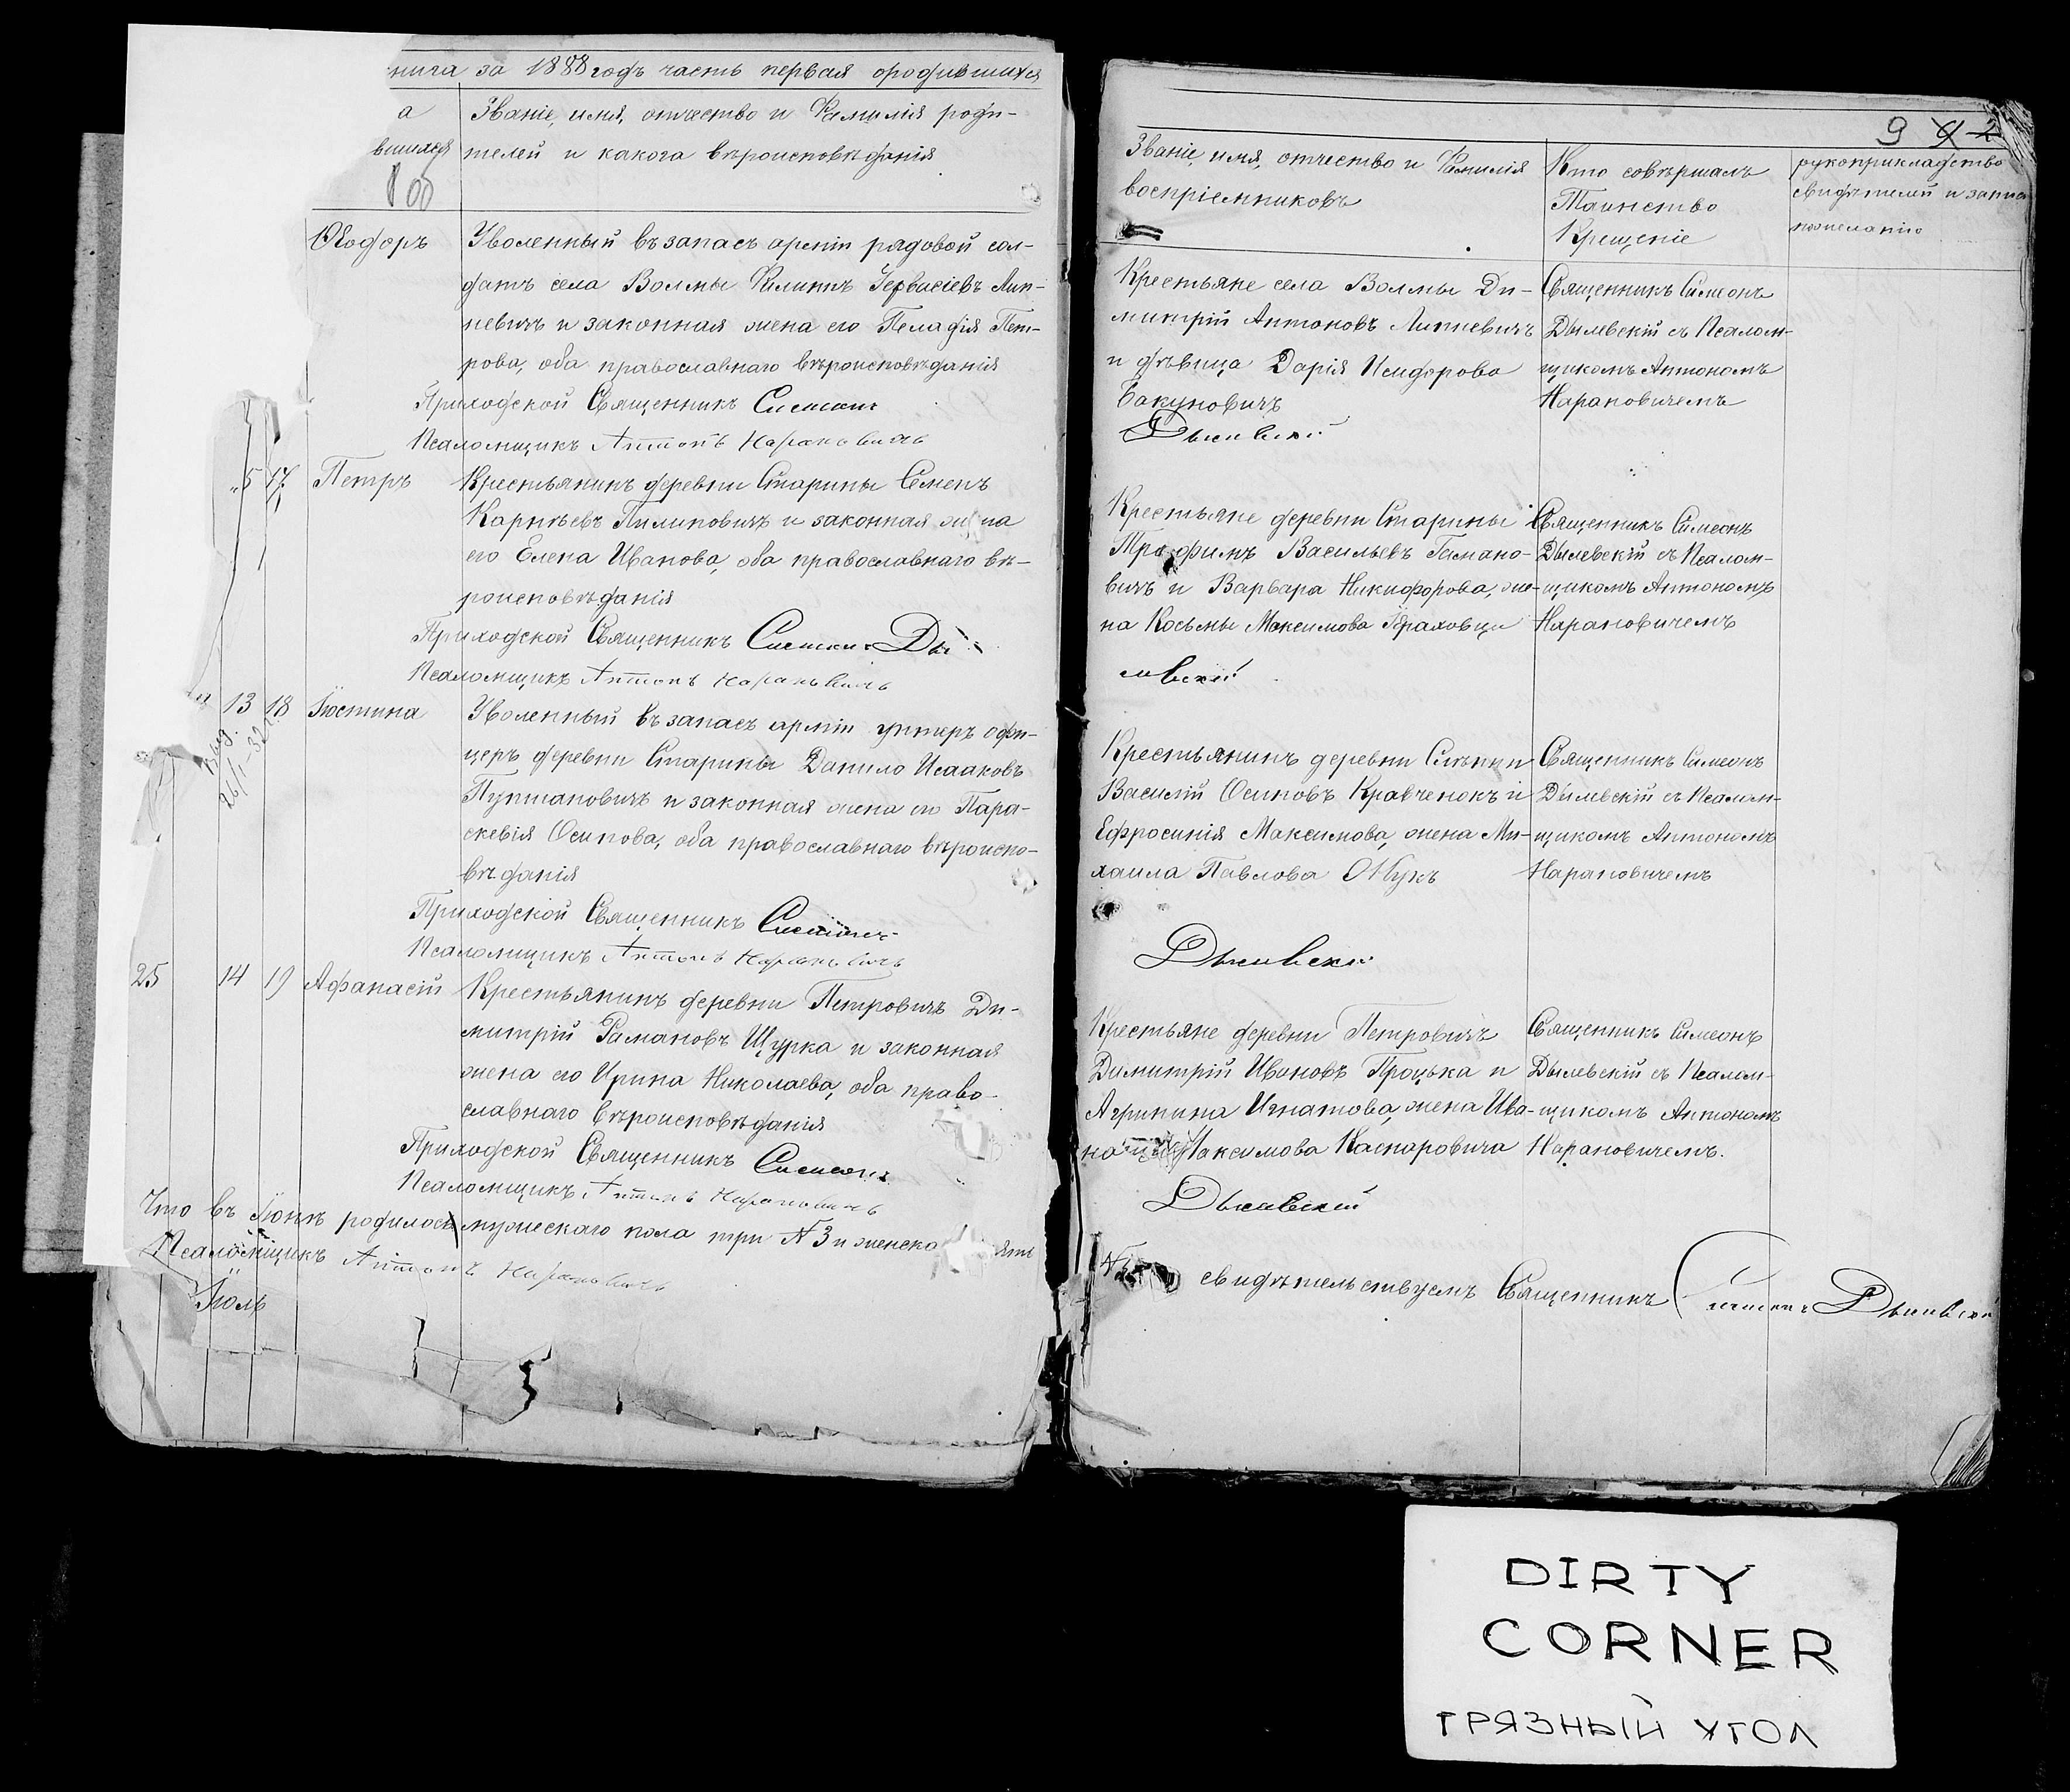 нига за 1888 годъ часть первая ородившихся
а
вшихся
Званіе, имя, отчество и Фамилія роди-
телей и какога вѣроисповѣданія
Ѳеодоръ
Уволенный въ запасъ арміи рядовой сол-
датъ села Волмы Филиппъ Гервасіевъ Лип-
невичъ и законная жена его Пелагія Пет-
рова, оба православнаго вѣроисповѣданія
Приходской Священникъ Симеонъ
Псаломщикъ Антонъ Нарановичъ
5 17 Петръ
Крестьянинъ деревни Старины Семенъ
Карпѣевъ Пилиповичъ и законная жена
его Елена Иванова, оба православнаго вѣ-
роисповѣданія
Приходской Священникъ Симеонъ Ды
Псаломщикъ Антонъ Нарановичъ
13 18 Іюстина
Уволенный въ запасъ арміи унтеръ офи-
церъ деревни Старины Данило Исааковъ
Пунтановичъ и законная жена его Пара-
скевія Осипова, оба православнаго вѣроиспо-
вѣданія
Приходской Священникъ Симеонъ
Псаломщикъ Антонъ Нарановичъ
25 14 19 Афанасій
Крестьянинъ деревни Петровичъ Ди-
митрій Рамановъ Щурка и законная
жена его Ирина Николаева, оба право-
славнаго вѣроисповѣданія
Приходской Священникъ Симеонъ
Псаломщикъ Антонъ Нарановичъ
Что въ Іюнѣ родилось мужескаго пола три № 3 и женска
Псаломщикъ Антонъ Нарановичъ
Іюль
9
Званіе, имя, отчество и Фамилія
воспріемниковъ
Кто совѣршалъ
Таинство
Крещеніе
рукоприкладство
свидѣтелей
Крестьяне села Волмы Ди-
митрій Антоновъ Липневичъ
и дѣвица Дарія Исидорова
Бакуновичъ
Дылевскій
Священникъ Симеонъ
Дылевскій съ Псалом-
щикомъ Антономъ
Нарановичемъ
Крестьяне деревни Старины
Трафимъ Васильевъ Гамано-
вичъ и Варвара Никифорова, же-
на Косьмы Максимова
левскій
Священникъ Симеонъ
Дылевскій съ Псалом-
щикомъ Антономъ
Нарановичемъ
Крестьянинъ деревни
Василій Осиповъ Кравченокъ и
Ефросинія Максимова, жена Ми-
хаила Павлова Жукъ
Дылевскій
Священникъ Симеонъ
Дылевскій съ Псалом-
щикомъ Антономъ
Нарановичемъ
Крестьяне деревни Петровичъ
Димитрій Ивановъ Процька и
Агрипина Игнатова, жена Ива-
на Максимова Каспаровича
Дылевскій
Священникъ Симеонъ
Дылевскій съ Псалом-
щикомъ Антономъ
Нарановичемъ.
свидѣтельствуемъ Священникъ Симеонъ Дылевскій
DIRTY
CORNER
ГРЯЗНЫЙ УГОЛ